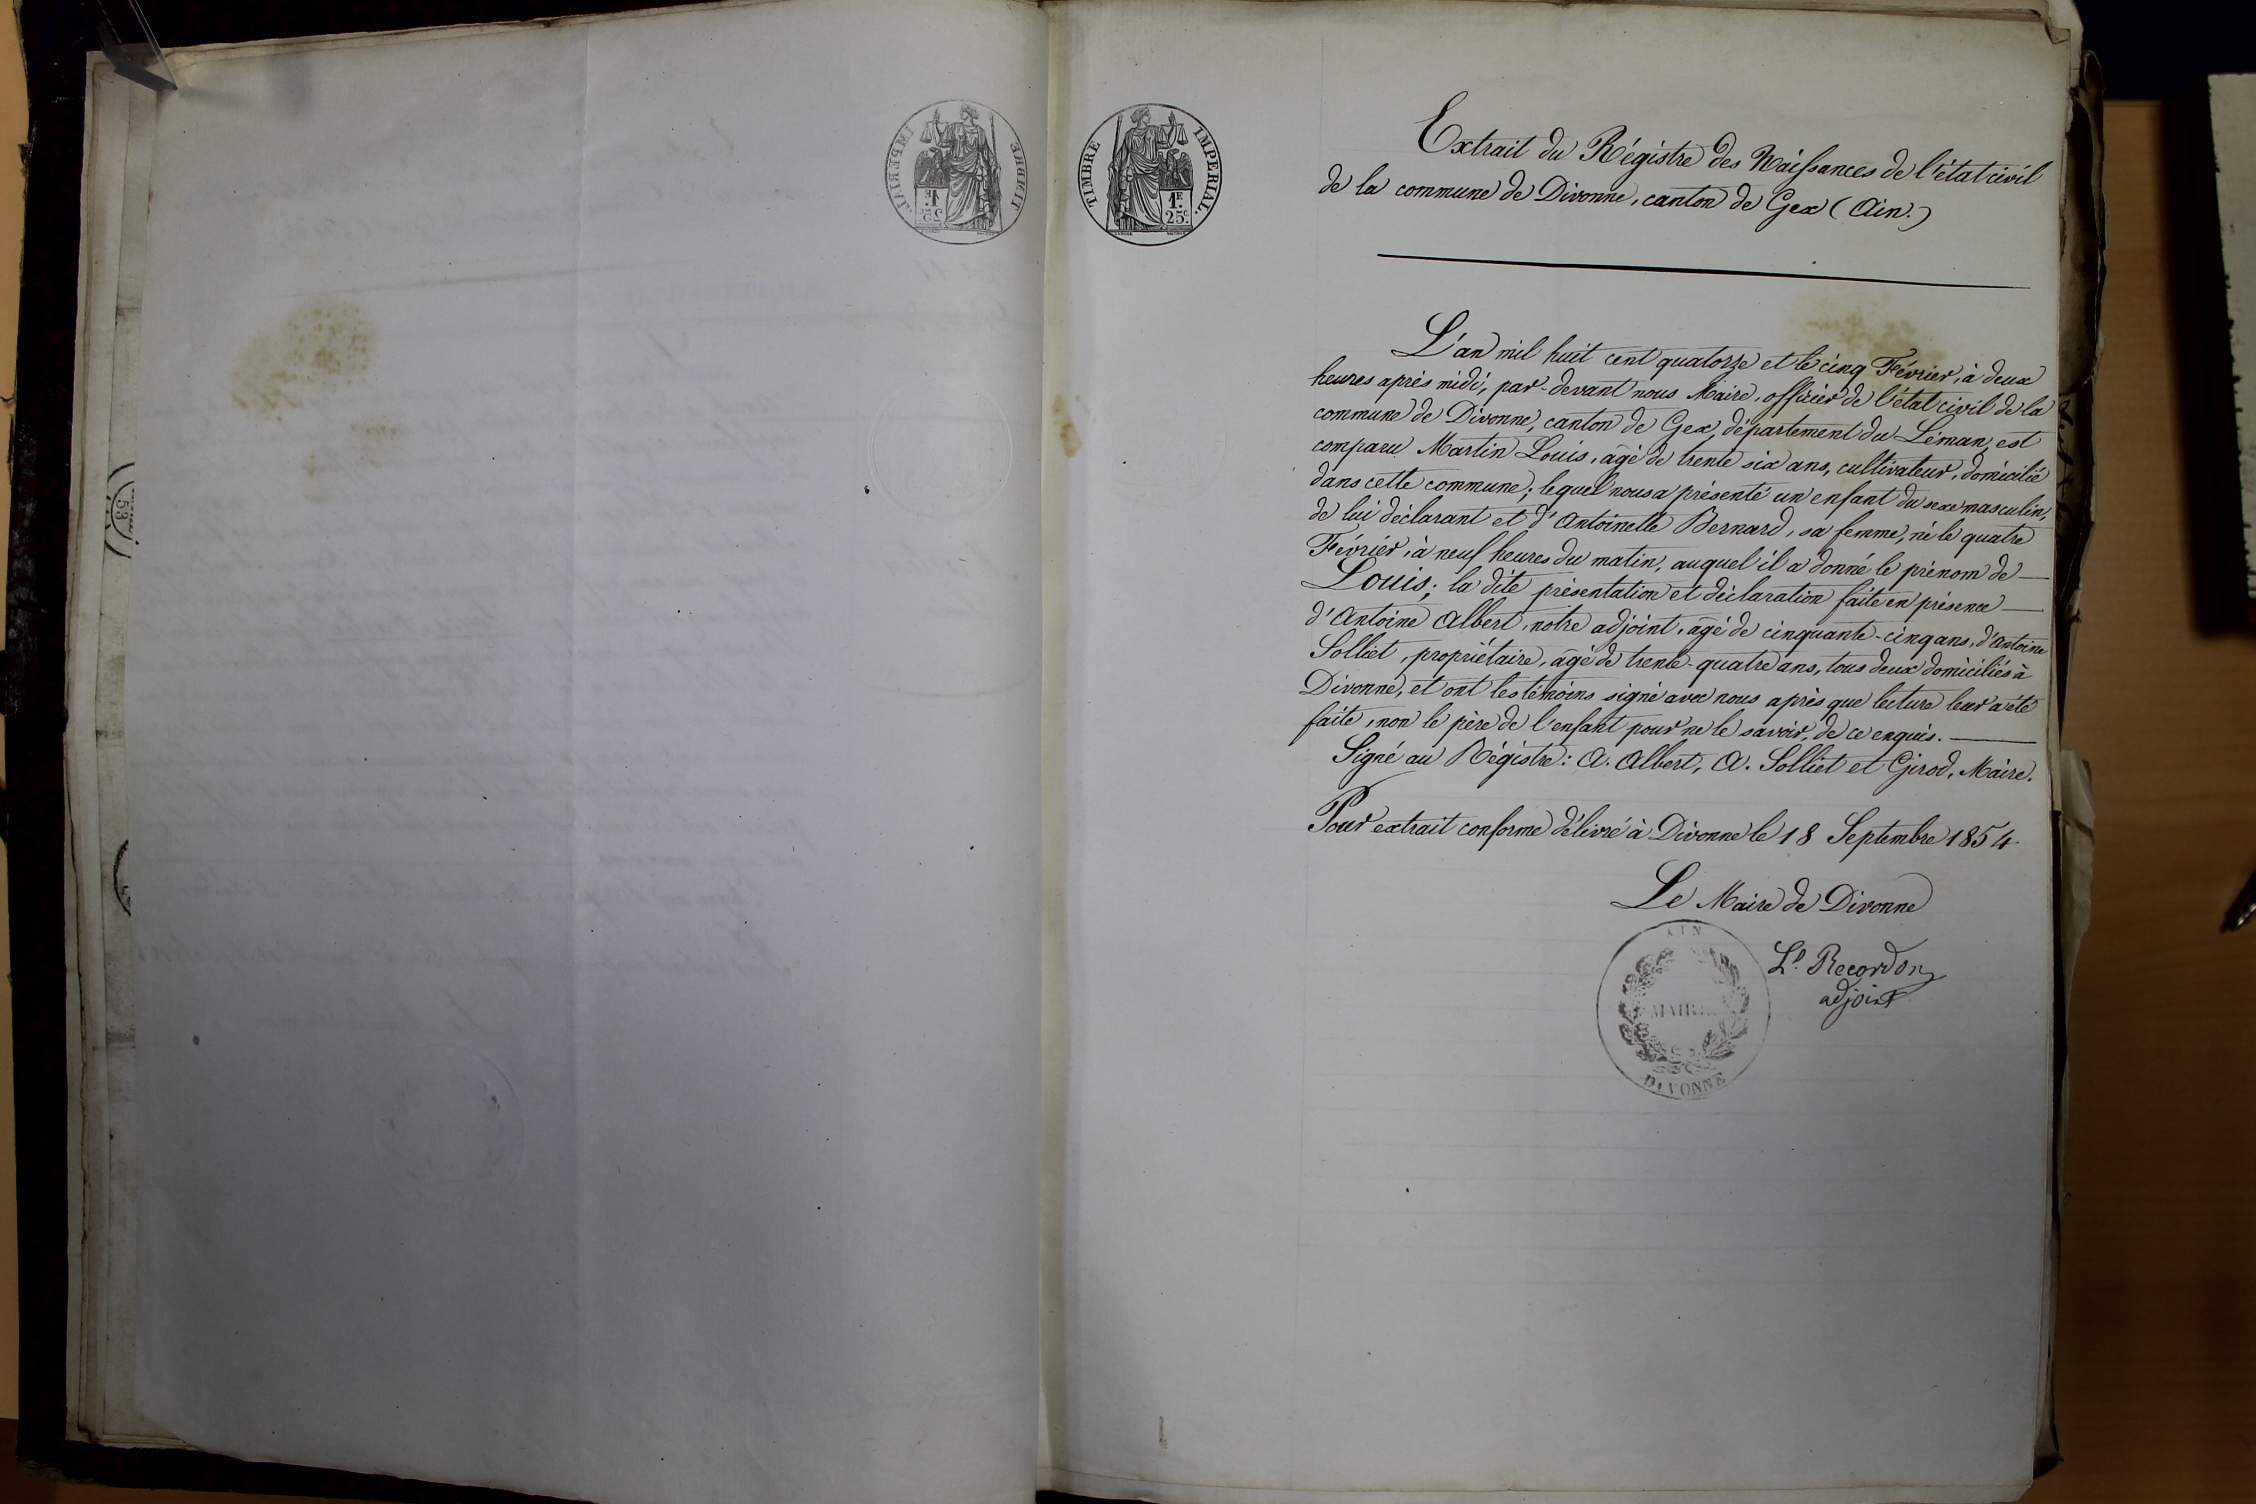 TIMBRE IMPERIAL.
1F. 25c.
Extrait du Régistre des Naissances de l'état civil
de la commune de Divonne, canton de Gex (Ain.)
L'an mil huit cent quatorze et le cinq Février, à deux
heures après midi, par-devant nous Maire, officier de l'état civil de la
commune de Divonne, canton de Gex, département du Léman, est
comparu Martin Louis, âgé de trente six ans, cultivateur, domicilié
dans cette commune; lequel nous a présenté un enfant du sexe masculin,
de lui déclarant et d'Antoinette Bernard, sa femme, né le quatre
Février, à neuf heures du matin, auquel il a donné le prénom de
Louis; la dite présentation et déclaration faite en présence
d'Antoine Albert, notre adjoint, âgé de cinquante-cinq ans, d'Antoine
Solliet, propriétaire, âgé de trente-quatre ans, tous deux domiciliés à
Divonne, et ont les témoins signé avec nous après que lecture leur a été
faite, non le père de l'enfant pour ne le savoir, de ce enquis.
Signé au Régistre: A. Albert, A. Solliet et Girod, Maire.
Pour extrait conforme délivré à Divonne le 18 Septembre 1854.
Le Maire de Divonne
Ls. Recordon
adjoint
AIN
MAIRIE
DIVONNE